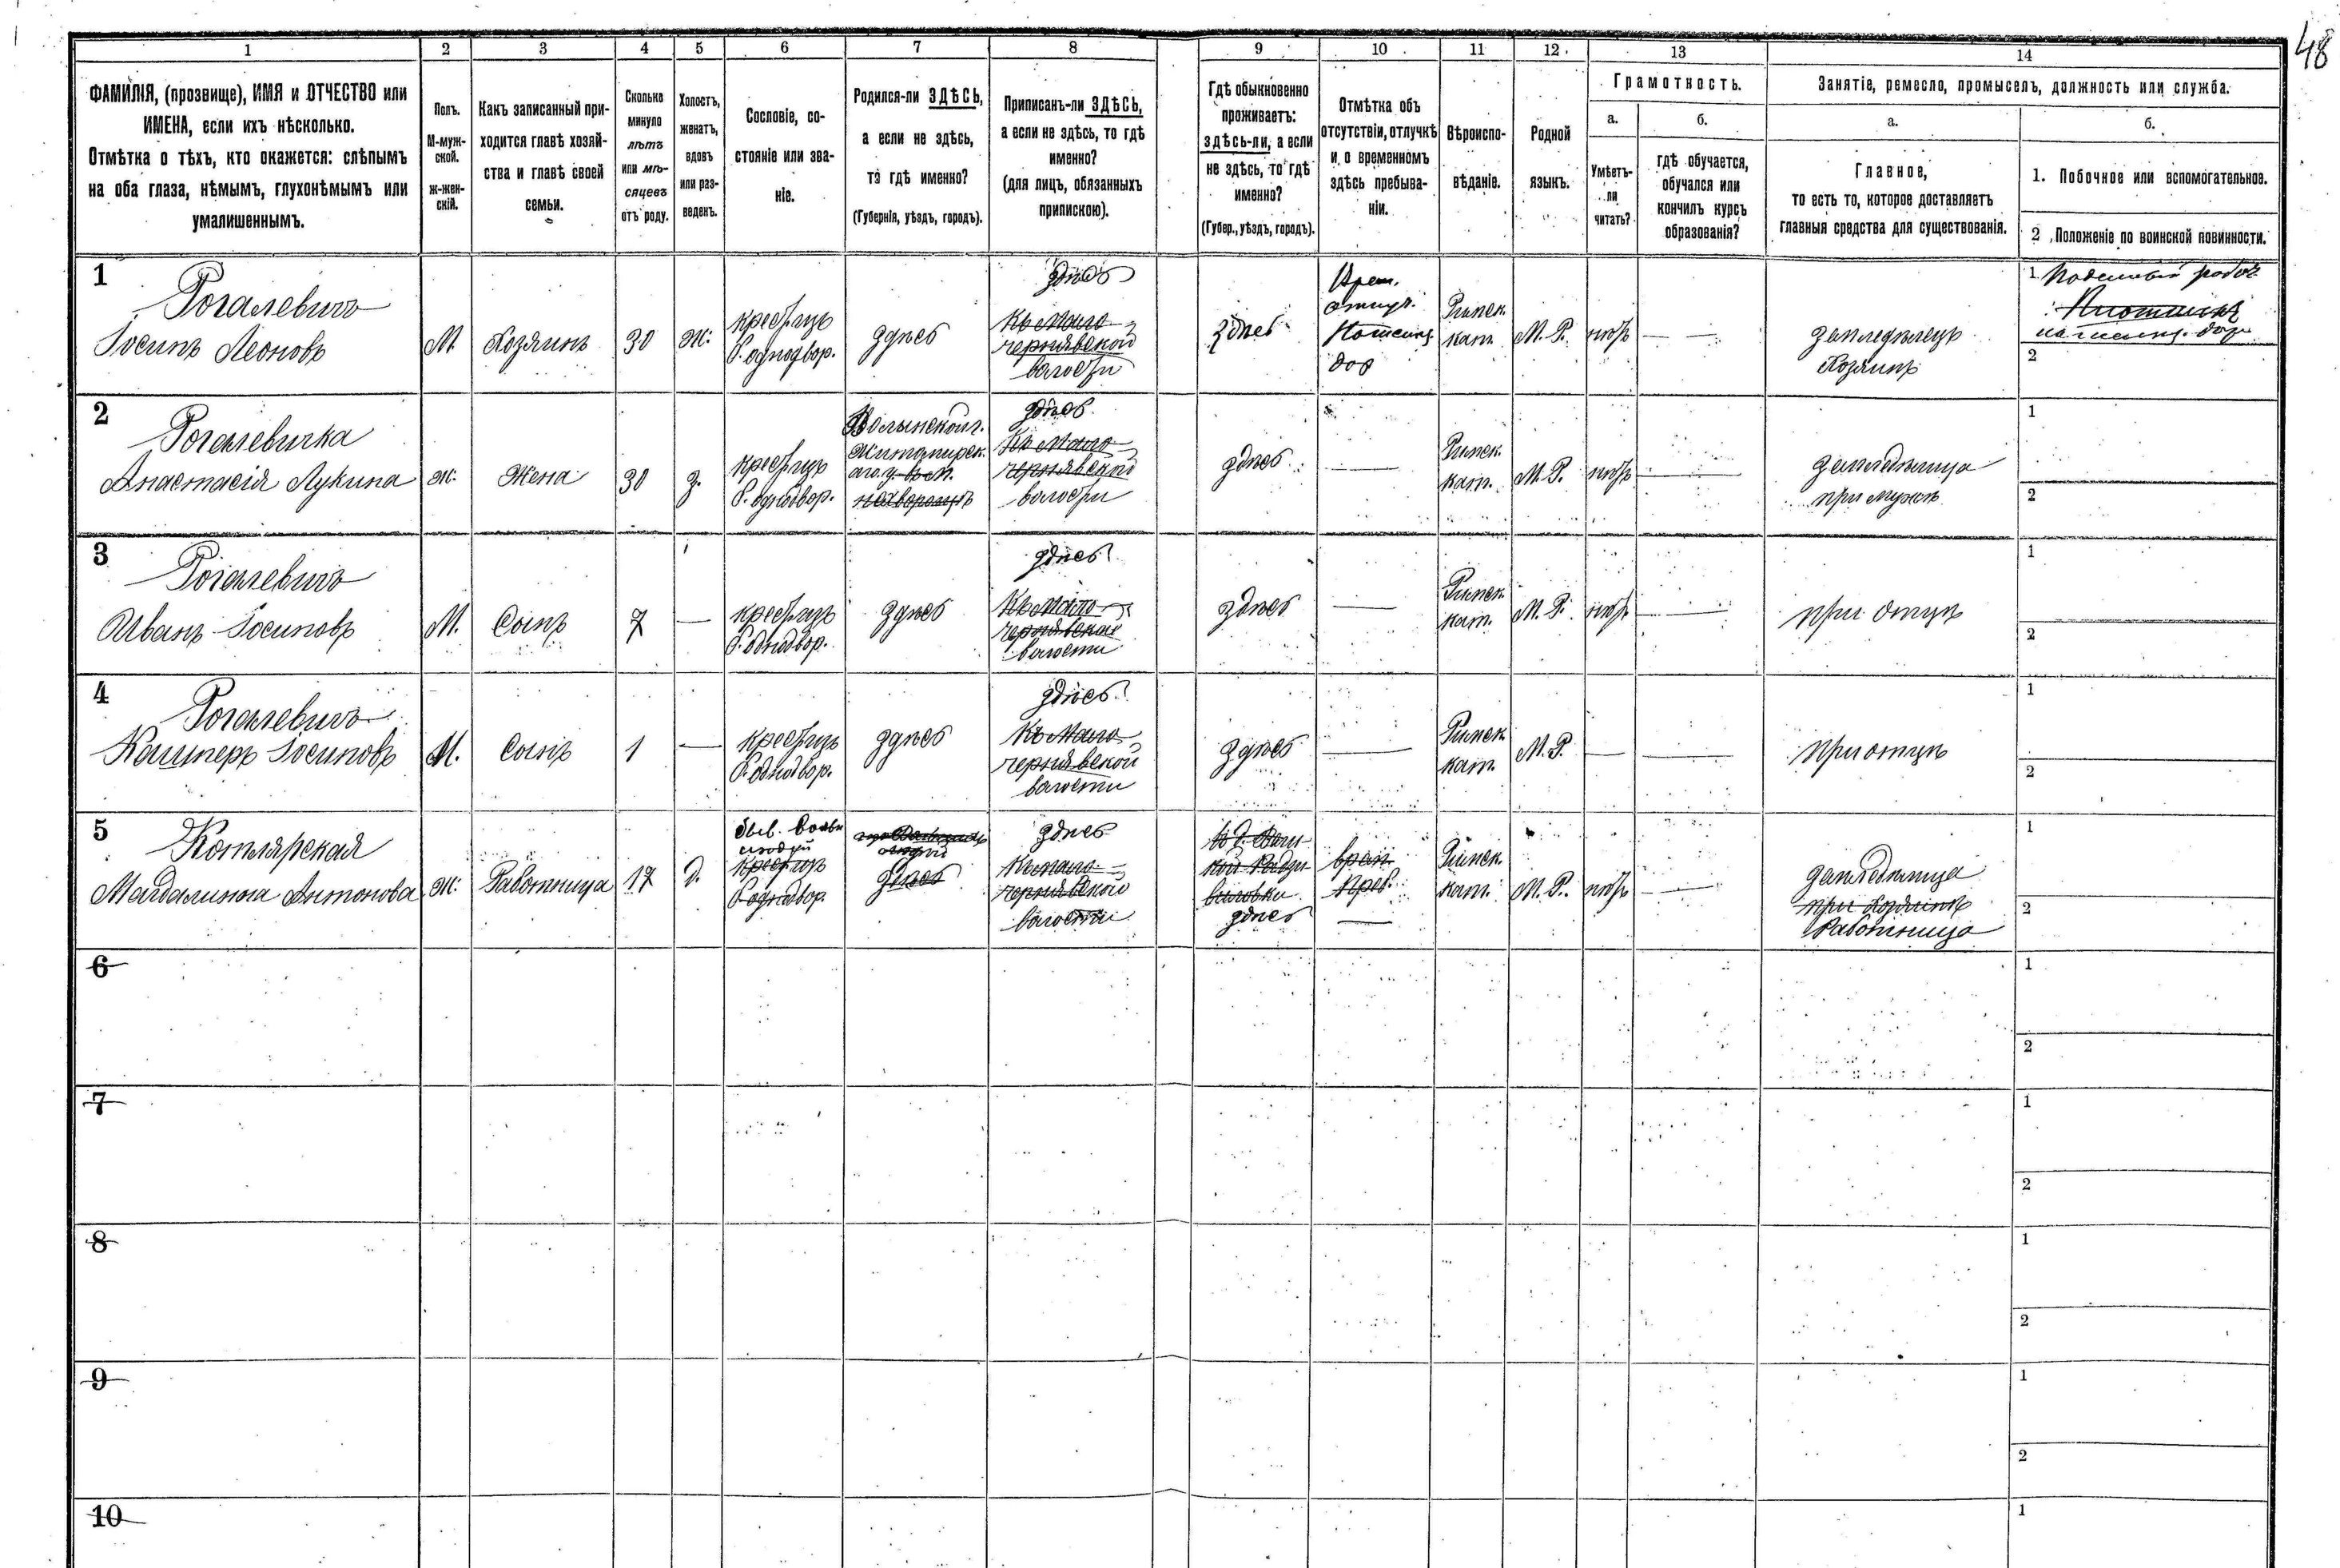 48
1 2 3 4 5 6 7 8 9 10 11 12 13 14
ФАМИЛІЯ, (прозвище), ИМЯ и ОТЧЕСТВО или
ИМЕНА, если ихъ нѣсколько.
Отмѣтка о тѣхъ, кто окажется: слѣпымъ
на оба глаза, нѣмымъ, глухонѣмымъ или
умалишеннымъ.
Полъ.
М-муж-
ской.
ж-жен-
скій.
Какъ записанный при-
ходится главѣ хозяй-
ства и главѣ своей
семьи.
Сколько
минуло
лѣтъ
или мѣ-
сяцевъ
отъ роду.
Холостъ,
женатъ,
вдовъ
или раз-
веденъ.
Сословіе, со-
стояніе или зва-
ніе.
Родился-ли ЗДѢСЬ,
а если не здѣсь,
то гдѣ именно?
(Губернія, уѣздъ, городъ).
Приписанъ-ли ЗДѢСЬ,
а если не здѣсь, то гдѣ
именно?
(для лицъ, обязанныхъ
припискою).
Гдѣ обыкновенно
проживаетъ:
здѣсь-ли, а если
не здѣсь, то гдѣ
именно?
(Губер., уѣздъ, городъ).
Отмѣтка объ
отсутствіи, отлучкѣ
и о временномъ
здѣсь пребыва-
ніи.
Вѣроиспо-
вѣданіе.
Родной
языкъ.
Грамотность.
а.
Умѣетъ-
ли
читать?
б.
гдѣ обучается,
обучался или
кончилъ курсъ
образованія?
Занятіе, ремесло, промыселъ, должность или служба.
а.
Главное,
то есть то, которое доставляетъ
главныя средства для существованія.
б.
1. Побочное или вспомогательное.
2. Положеніе по воинской повинности.
1
Рогалевичъ
Іосипъ Леоновъ
М
Хозяинъ
30
ж.
здѣсь
здѣсь
Къ Мало-
чернявской
волости
здѣсь
Римск.
кат.
М. Р.
нѣтъ
земледѣлецъ
Хозяинъ
1
2
2
Рогалевичка
Анастасія Лукина
ж.
Жена
30
з.
Волынской г.
здѣсь
Къ Мало-
чернявской
волости
здѣсь
Римск.
кат.
М. Р.
нѣтъ
при мужѣ
1
2
3
Рогалевичъ
Иванъ Іосиповъ
М.
Сынъ
7
здѣсь
здѣсь
Къ Мало-
чернявской
волости
здѣсь
Римск.
кат.
М. Р.
нѣтъ
при отцѣ
1
2
4
Рогалевичъ
Кашперъ Іосиповъ
М.
Сынъ
1
здѣсь
здѣсь
Къ Мало-
чернявской
волости
здѣсь
Римск.
кат.
М. Р.
при отцѣ
1
2
5
Котлярская
Магдалина Антонова
ж.
Работница
17
д.
здѣсь
здѣсь
Къ Мало-
чернявской
волости
здѣсь
Римск.
кат.
М. Р.
нѣтъ
Работница
1
2
6
1
2
7
1
2
8
1
2
9
1
2
10
1